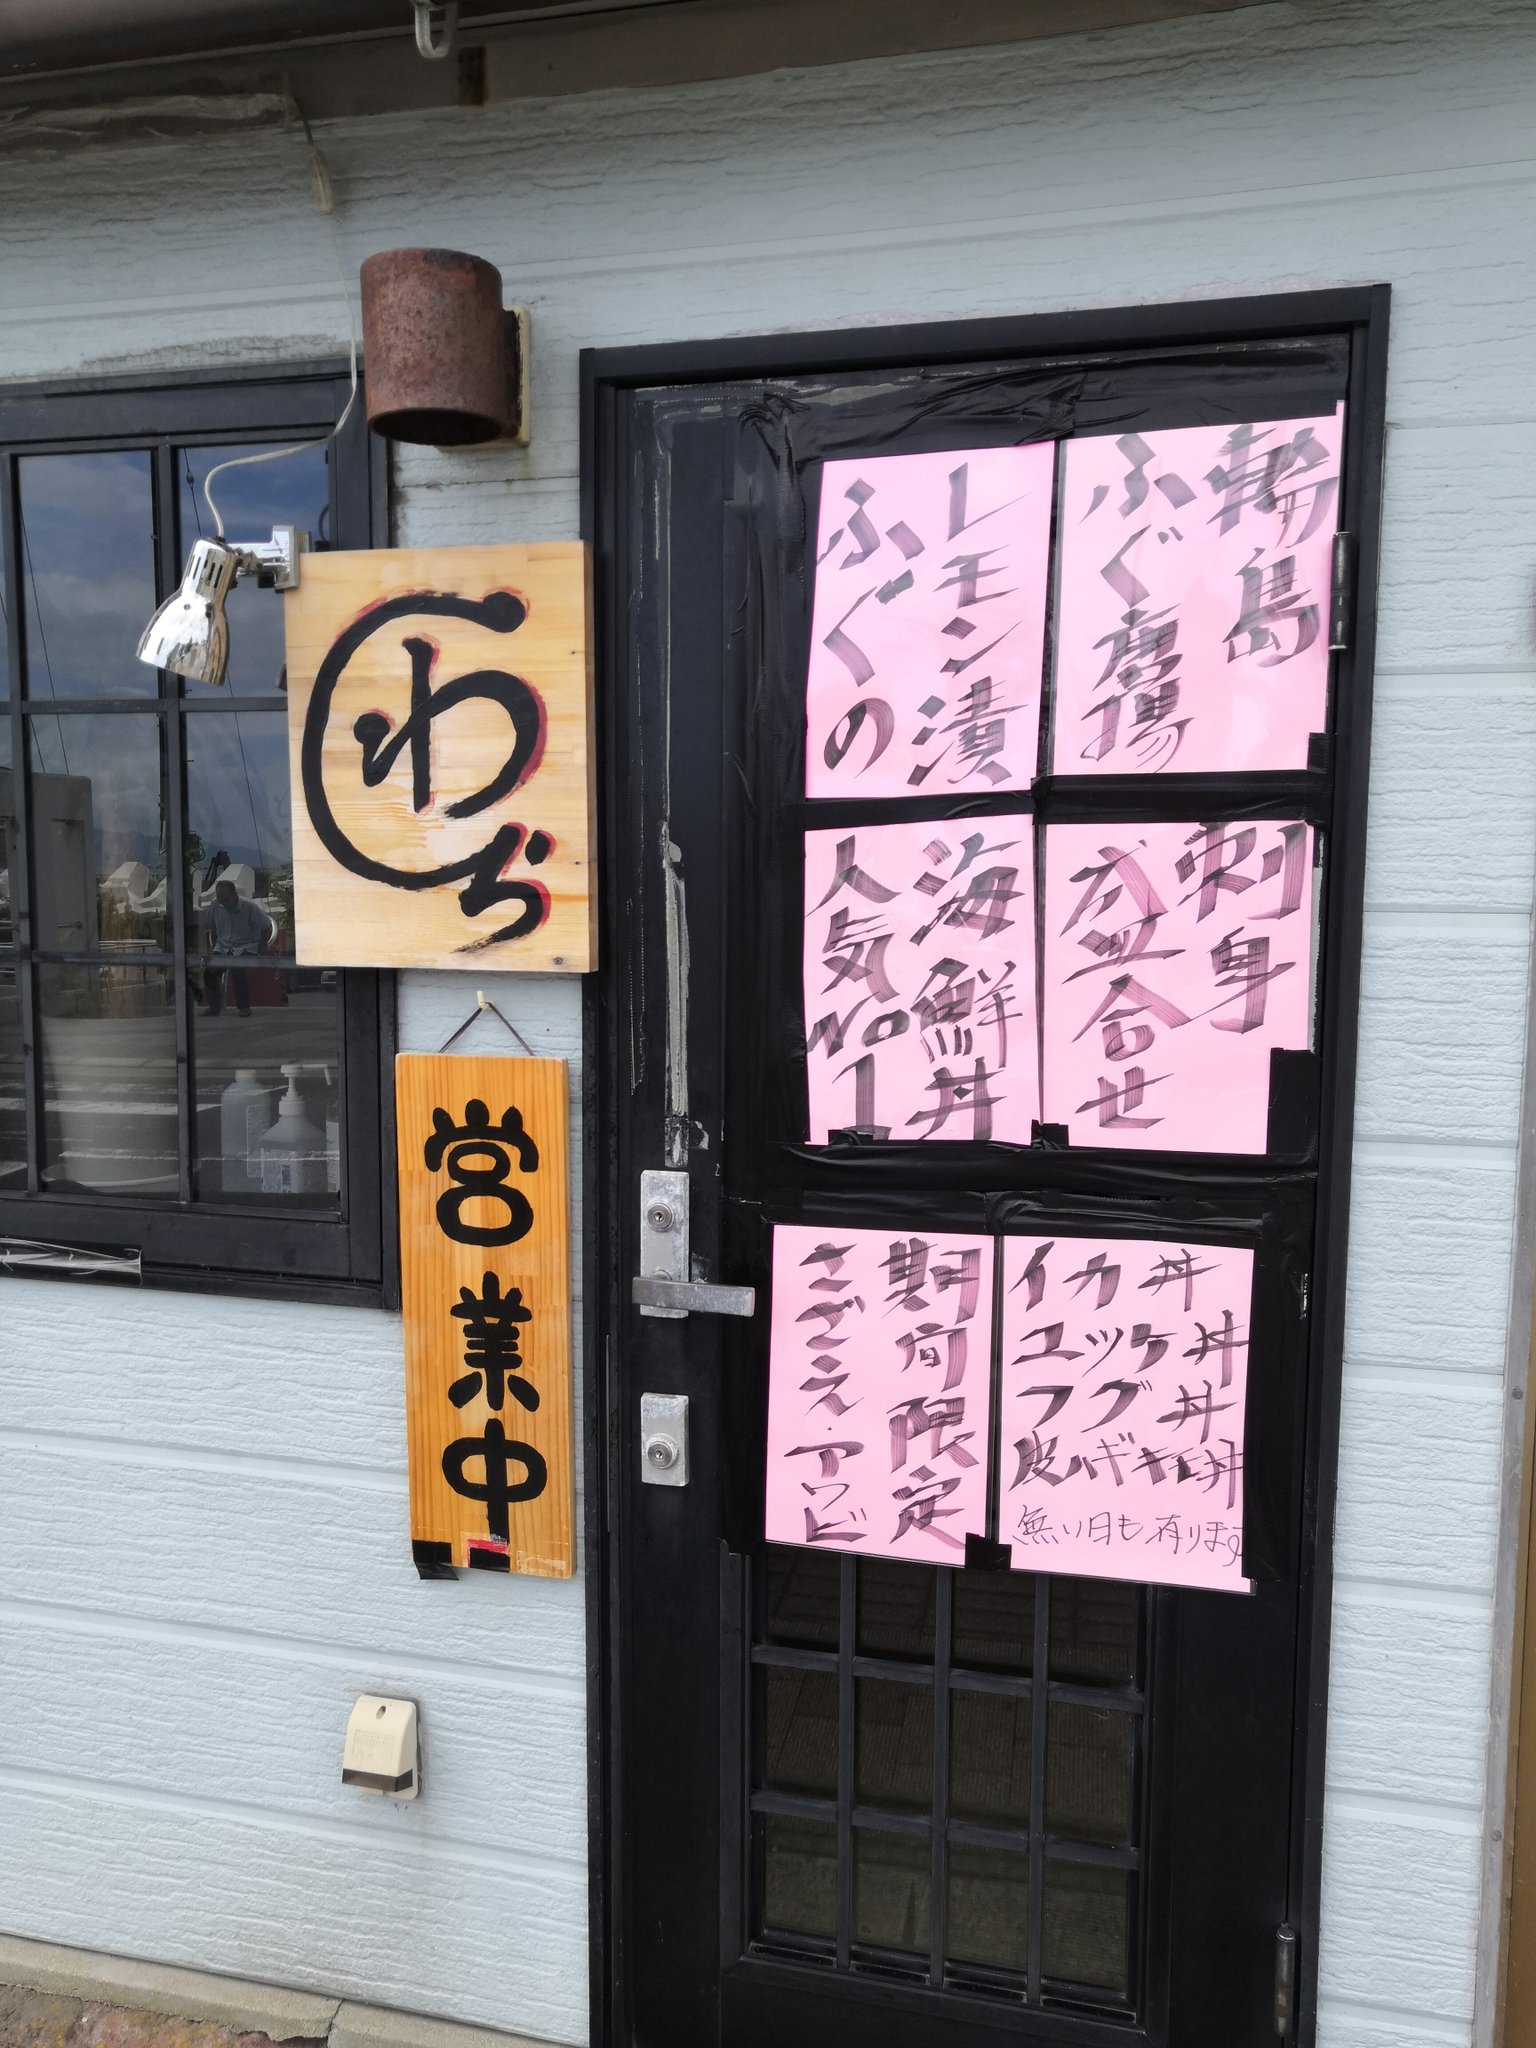 わら
営業中
輪島
ふぐ唐揚
レモン漬
ふぐの
刺身
盛合せ
海鮮丼
人気No1
イカ丼
ユッケ丼
フグ丼
皮ハギキモ丼
無い日も有ります
期間限定
さざえ・アワビ